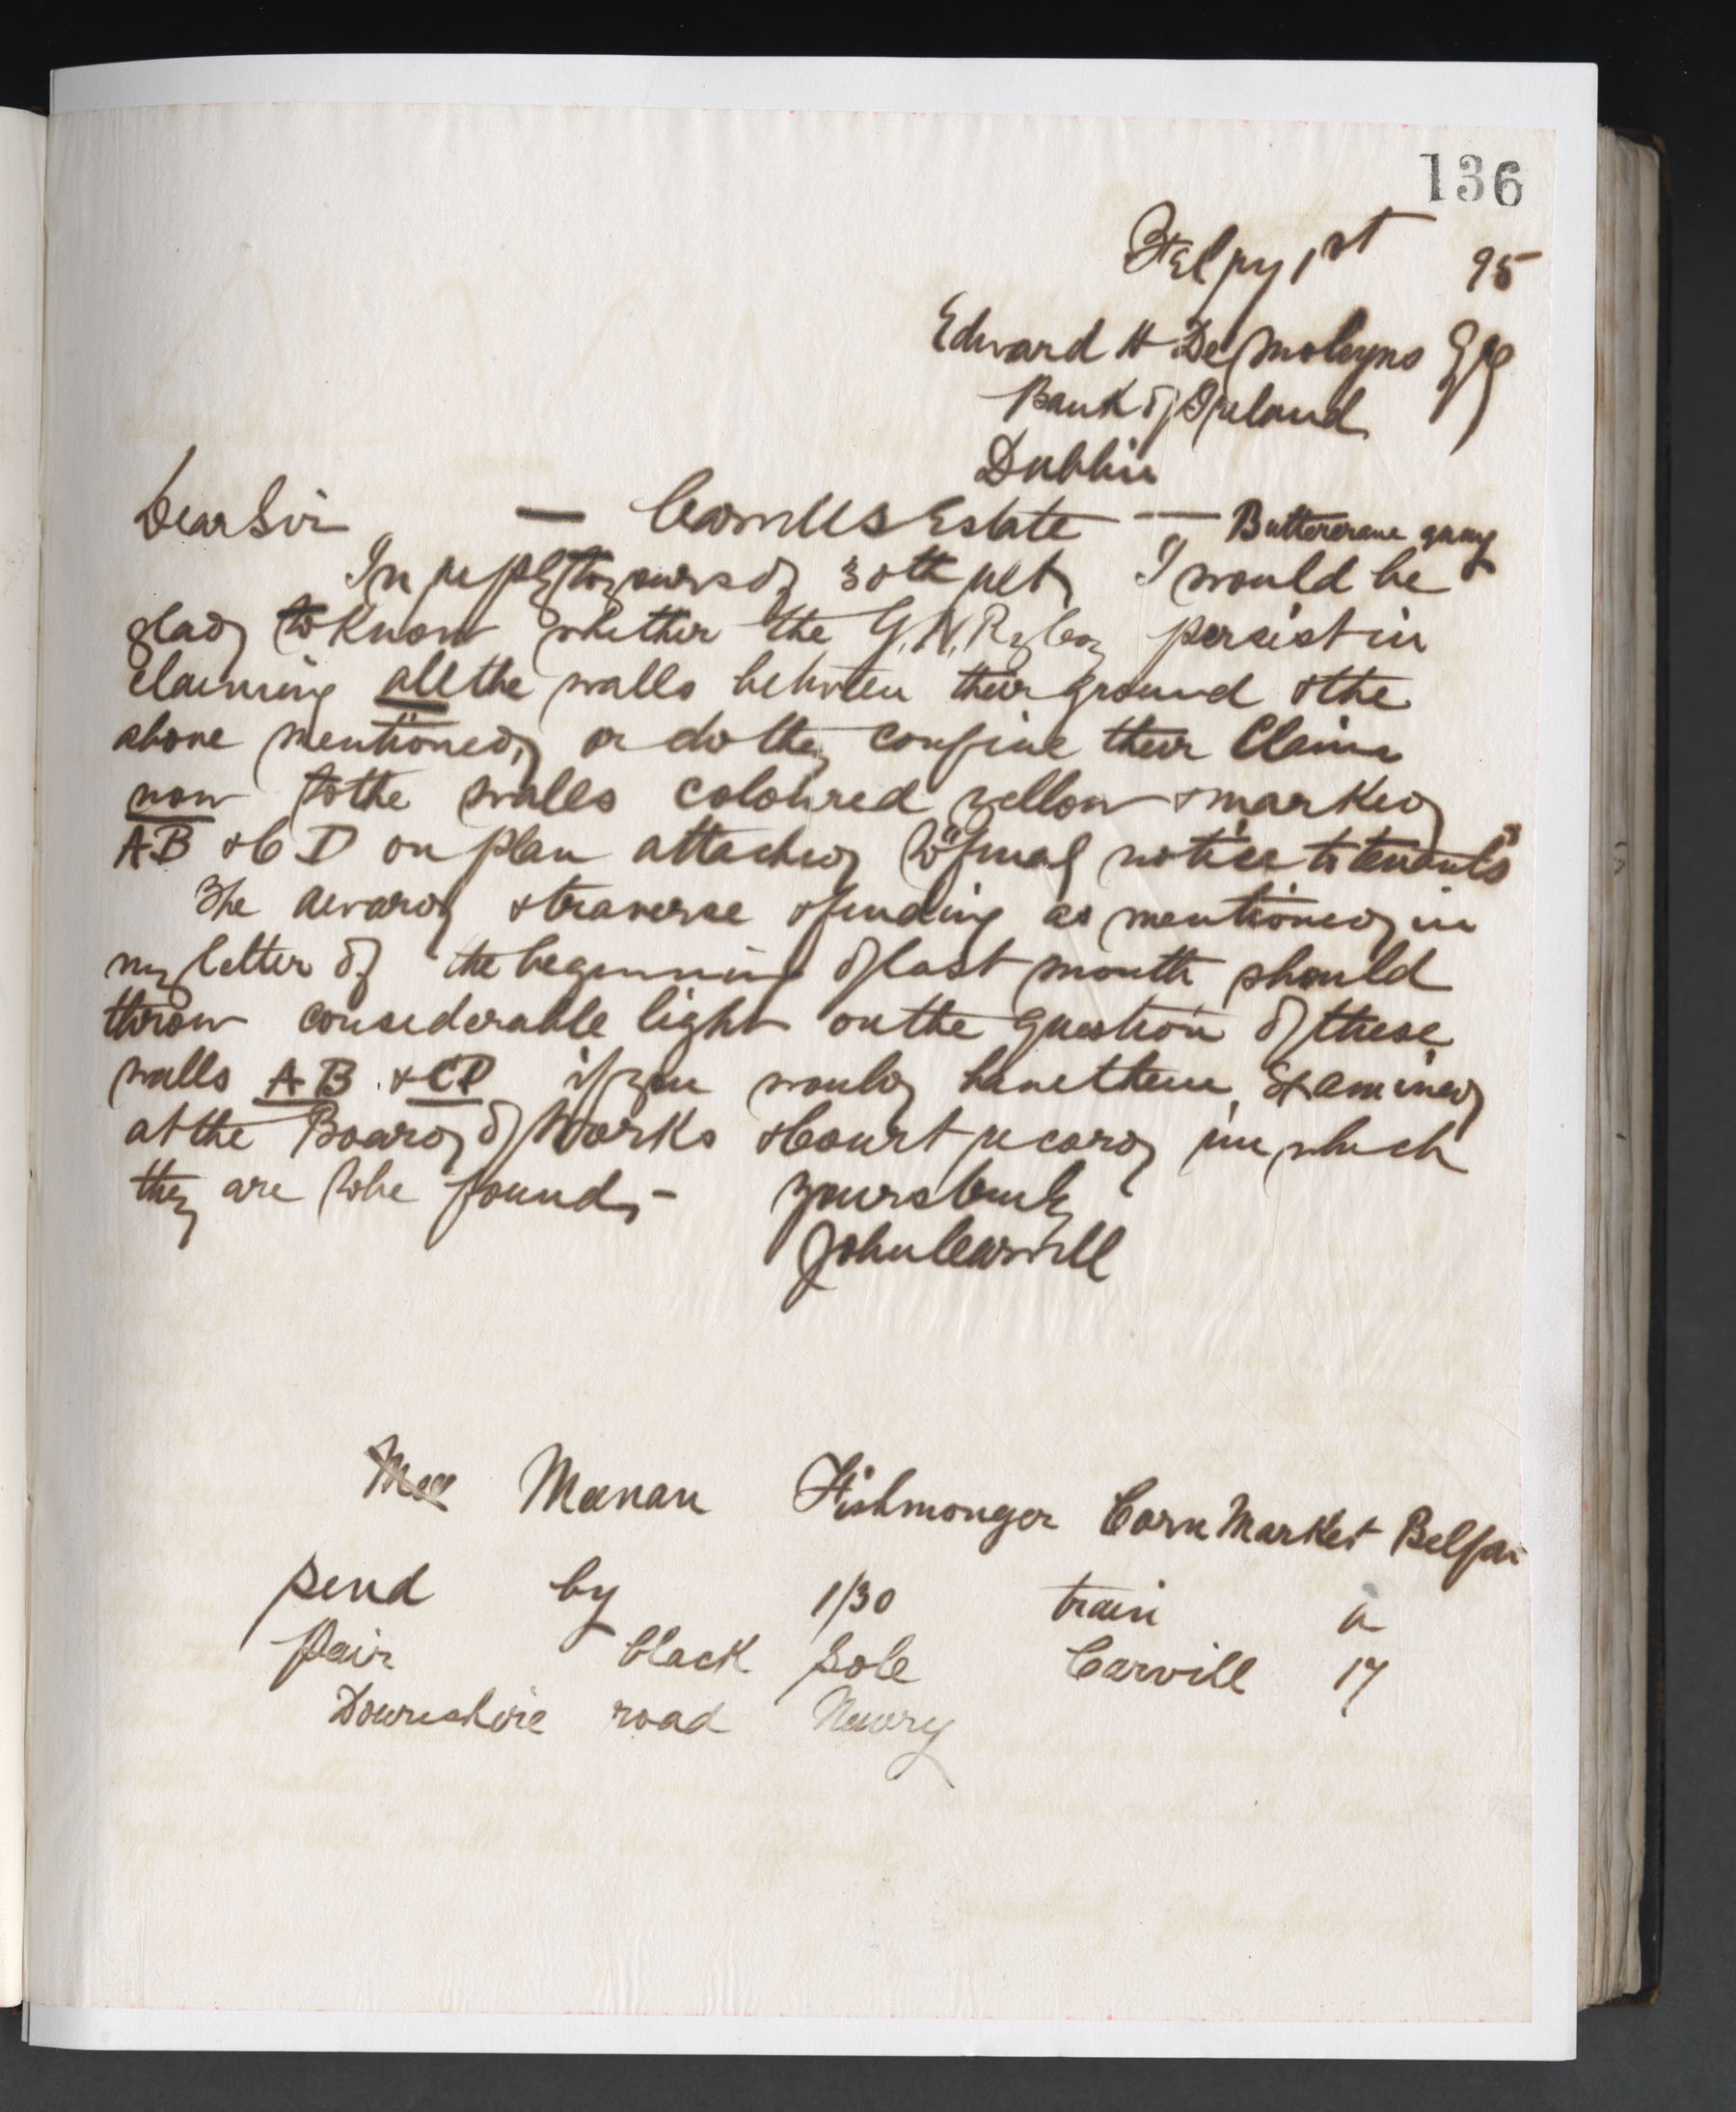 136
Feby 1st 95
Edward H De Moleyns Esq
Bank of Ireland
Dublin
Dear Sir — Carvills Estate — Buttercrane quay
In reply to yours of 30th ult, I would be
glad to know whether the G.N.Ry Coy persist in
claiming all the walls between their ground & the
above mentioned, or do they confine their Claim
now to the walls coloured yellow & marked
AB & CD on plan attached to "final notice to tenants"
The award & traverse & finding as mentioned in
my letter of the beginning of last month should
throw considerable light on the question of these
walls AB & CD if you would have them examined
at the Board of Works & Court record in which
they are to be found, -
yours truly
John Carvill
Meenan Fishmonger Corn Market Belfas
send by 1/30 train a
pair black sole Carvill 17
Downshire road Newry